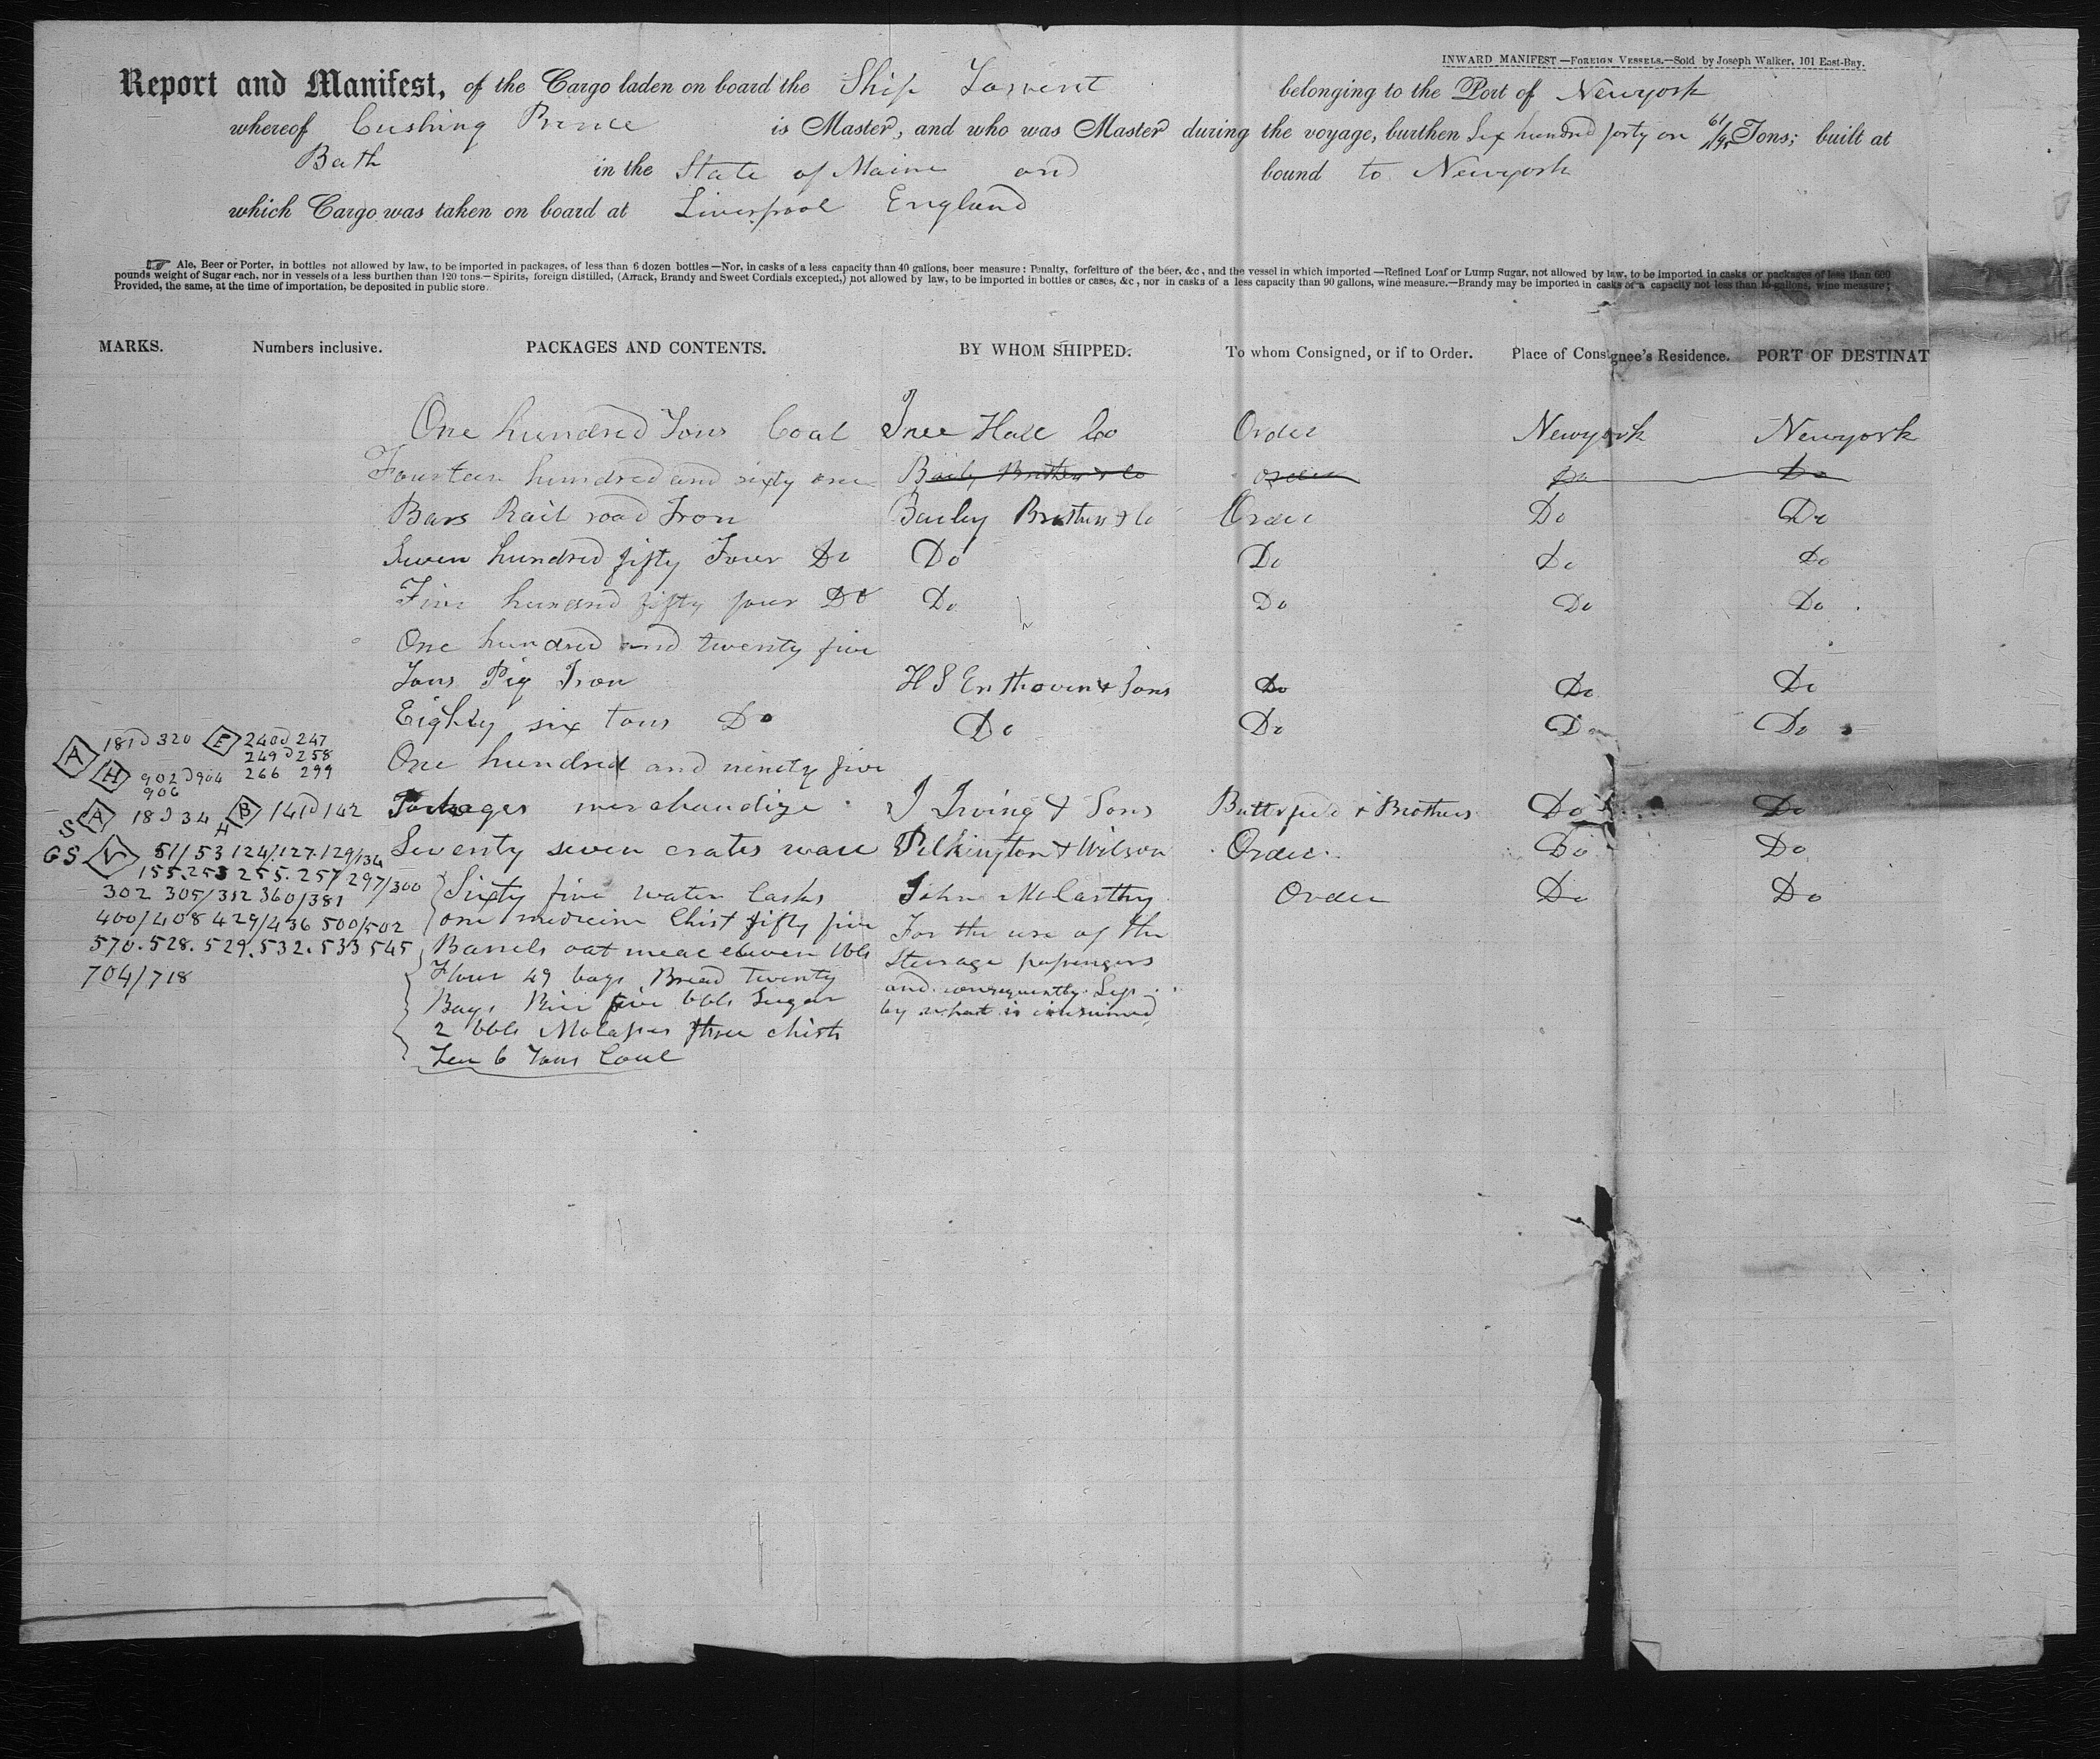 INWARD MANIFEST—FOREIGN VESSELS.—Sold by Joseph Walker, 101 East-Bay.
Report and Manifest, of the Cargo laden on board the Ship Torrent belonging to the Port of Newyork
whereof Cushing Prince is Master, and who was Master during the voyage, burthen Six hundred forty on 61/95 Tons; built at
Bath in the State of Maine and bound to Newyork
which Cargo was taken on board at Liverpool England
Ale, Beer or Porter, in bottles not allowed by law, to be imported in packages, of less than 6 dozen bottles—Nor, in casks of a less capacity than 40 gallons, beer measure: Penalty, forfeiture of the beer, &c, and the vessel in which imported—Refined Loaf or Lump Sugar, not allowed by law, to be imported in casks or packages of less than 600
pounds weight of Sugar each, nor in vessels of a less burthen than 120 tons—Spirits, foreign distilled, (Arrack, Brandy and Sweet Cordials excepted,) not allowed by law, to be imported in bottles or cases, &c, nor in casks of a less capacity than 90 gallons, wine measure.—Brandy may be imported in casks of a capacity not less than 15 gallons, wine measure;
Provided, the same, at the time of importation, be deposited in public store.
MARKS. Numbers inclusive. PACKAGES AND CONTENTS. BY WHOM SHIPPED. To whom Consigned, or if to Order. Place of Consignee's Residence. PORT OF DESTINAT
One hundred Tons Coal Hall Co Order Newyork Newyork
Fourteen hundred and sixty one Baily Brothers & Co Order Do Do
Bars Rail road Iron Bailey Brothers & Co Order Do Do
Seven hundred fifty Four Do Do Do Do Do
Five hundred fifty four Do Do Do Do Do
One hundred and twenty five
Tons Pig Iron H S Enthoven & Sons Do Do Do
Eighty six tons Do Do Do Do Do
A 181 320 E 240 247
249 258
One hundred and ninety five
H 902 904 266 299
906
S A 18 34 H B 141 142 Packages merchandize J Irving & Sons Butterfield & Brothers Do Do
G S V 51/53 124/127.129/134 Seventy seven crates ware Pilkington & Wilson Order Do Do
155.253 255.257 297/300
302 305/312 360/381 Sixty five water Casks John McCarthy Order Do Do
400/408 429/436 500/502 one medicine Chist fifty five For the use of the
570.528.529.532.533 545 Barrels oat meal eleven bbls Sterage passengers
704/718 Flour 49 bags Bread Twenty and consequently Less
Bags Rice five bbls Sugar by what is consumed
2 bbls Molasses three chists
Tea 6 Tons Coal